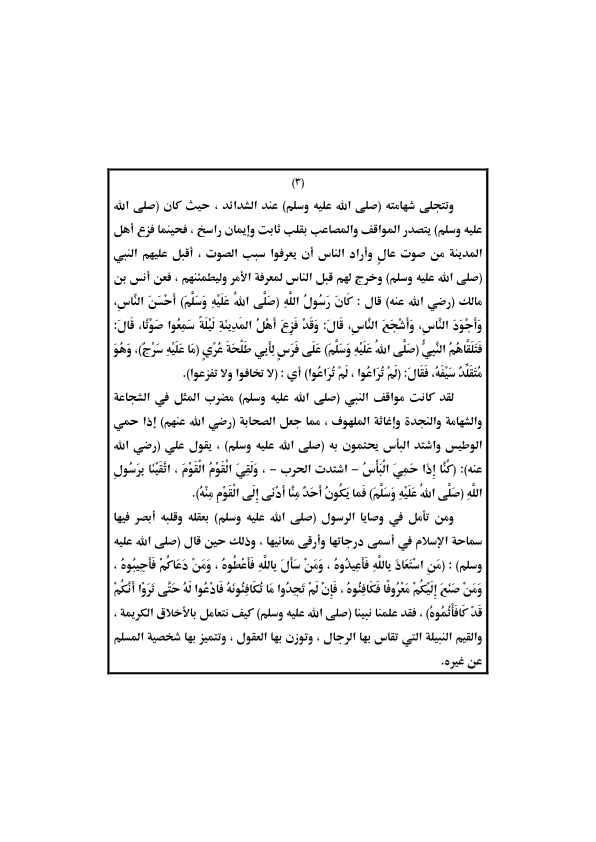 (٣)
وتتجلى شهامته (صلى الله عليه وسلم) عند الشدائد ، حيث كان (صلى الله
عليه وسلم) يتصدر المواقف والمصاعب بقلب ثابت وإيمان راسخ ، فحينما فزع أهل
المدينة من صوت عالٍ وأراد الناس أن يعرفوا سبب الصوت ، أقبل عليهم النبي
(صلى الله عليه وسلم) وخرج لهم قبل الناس لمعرفة الأمر وليطمئنهم ، فعن أنس بن
مالك (رضي الله عنه) قال : كَانَ رَسُولُ اللَّهِ (صَلَّى اللهُ عَلَيْهِ وَسَلَّمَ) أَحْسَنَ النَّاسِ،
وَأَجْوَدَ النَّاسِ، وَأَشْجَعَ النَّاسِ، قَالَ: وَقَدْ فَزِعَ أَهْلُ المَدِينَةِ لَيْلَةً سَمِعُوا صَوْتًا، قَالَ:
فَتَلَقَّاهُمُ النَّبِيُّ (صَلَّى اللهُ عَلَيْهِ وَسَلَّمَ) عَلَى فَرَسٍ لِأَبِي طَلْحَةَ عُرْيٍ (مَا عَلَيْهِ سَرْجٌ)، وَهُوَ
مُتَقَلِّدٌ سَيْفَهُ، فَقَالَ: (لَمْ تُرَاعُوا ، لَمْ تُرَاعُوا) أي : (لا تخافوا ولا تفزعوا).
لقد كانت مواقف النبي (صلى الله عليه وسلم) مضرب المثل في الشجاعة
والشهامة والنجدة وإغاثة الملهوف ، مما جعل الصحابة (رضي الله عنهم) إذا حمي
الوطيس واشتد البأس يحتمون به (صلى الله عليه وسلم) ، يقول علي (رضي الله
عنه): (كُنَّا إِذَا حَمِيَ الْبَأْسُ – اشتدت الحرب – ، وَلَقِيَ الْقَوْمُ الْقَوْمَ ، اتَّقَيْنَا بِرَسُولِ
اللَّهِ (صَلَّى اللهُ عَلَيْهِ وَسَلَّمَ) فَما يَكُونُ أَحَدٌ مِنَّا أَدْنَى إِلَى الْقَوْمِ مِنْهُ).
ومن تأمل في وصايا الرسول (صلى الله عليه وسلم) بعقله وقلبه أبصر فيها
سماحة الإسلام في أسمى درجاتها وأرقى معانيها ، وذلك حين قال (صلى الله عليه
وسلم) : (مَنِ اسْتَعَاذَ بِاللَّهِ فَأَعِيذُوهُ ، وَمَنْ سَأَلَ بِاللَّهِ فَأَعْطُوهُ ، وَمَنْ دَعَاكُمْ فَأَجِيبُوهُ ،
وَمَنْ صَنَعَ إِلَيْكُمْ مَعْرُوفًا فَكَافِئُوهُ ، فَإِنْ لَمْ تَجِدُوا مَا تُكَافِئُونَهُ فَادْعُوا لَهُ حَتَّى تَرَوْا أَنَّكُمْ
قَدْ كَافَأْتُمُوهُ) ، فقد علمنا نبينا (صلى الله عليه وسلم) كيف نتعامل بالأخلاق الكريمة ،
والقيم النبيلة التي تقاس بها الرجال ، وتوزن بها العقول ، وتتميز بها شخصية المسلم
عن غيره.